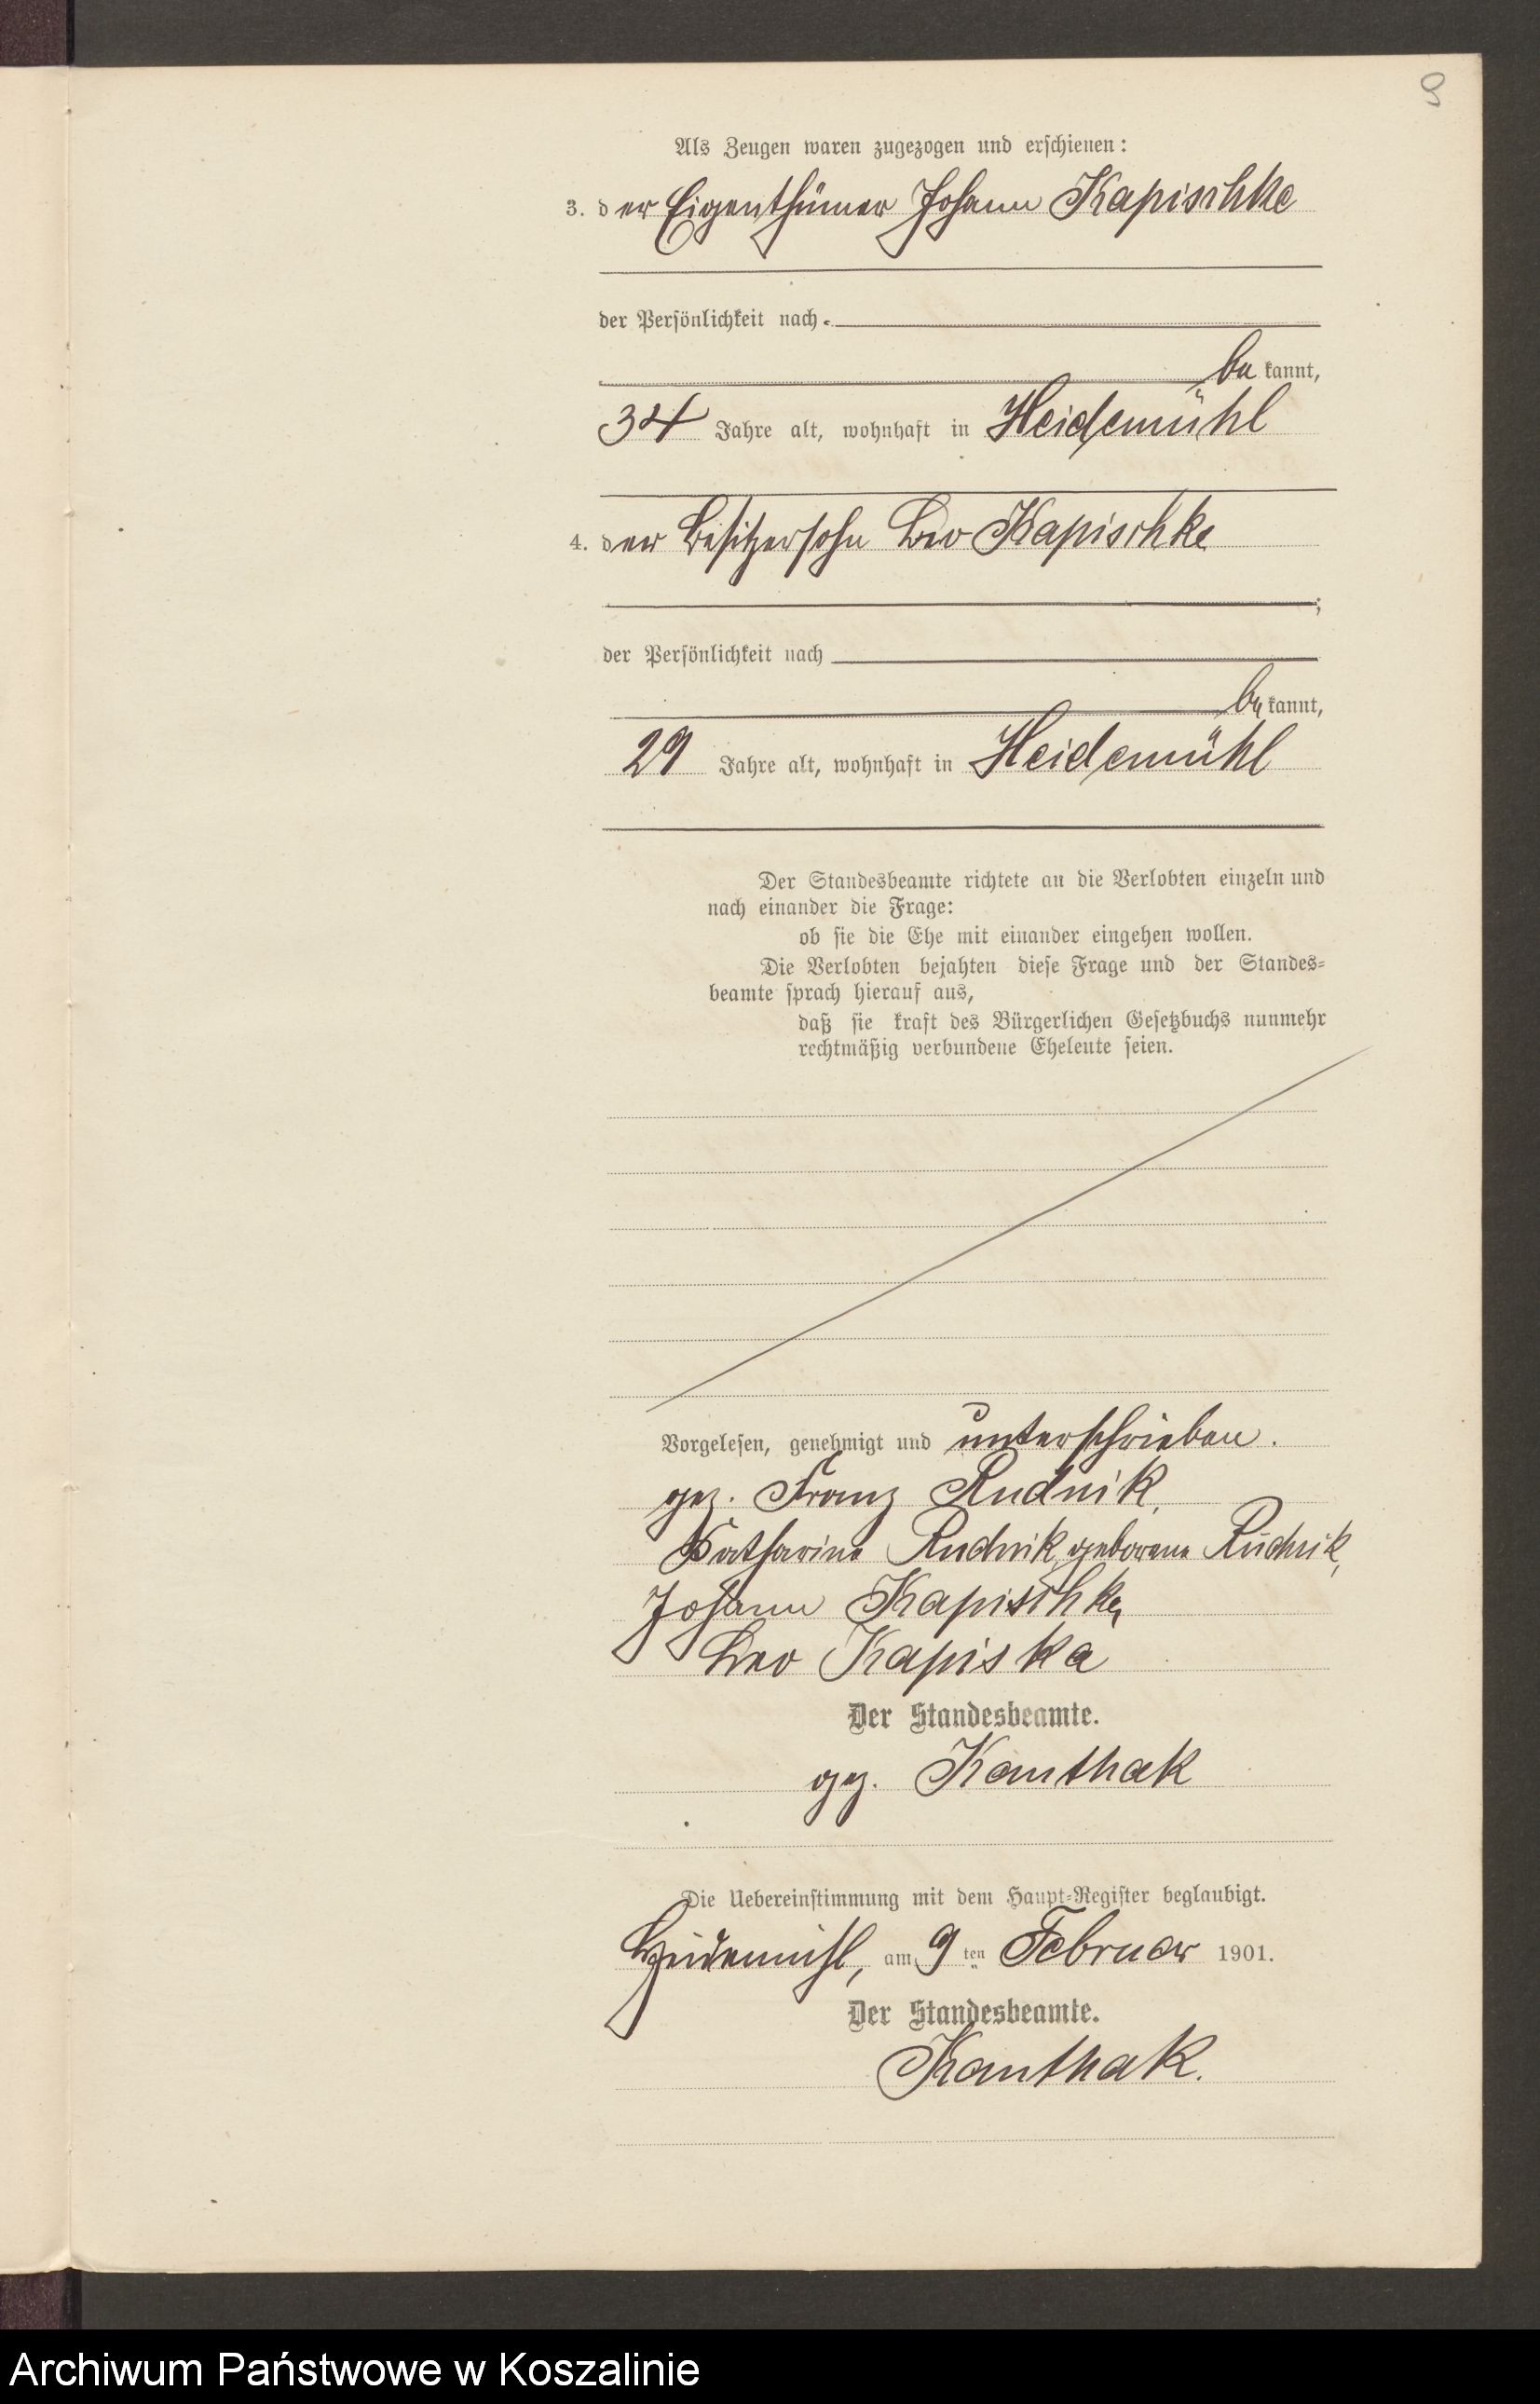 9
Als Zeugen waren zugezogen und erschienen:
3. der Eigenthümer Johann Kapischke
der Persönlichkeit nach
bekannt,
34 Jahre alt, wohnhaft in Heidemühl
4. der Besitzersohn Leo Kapischke
;
der Persönlichkeit nach
bekannt,
29 Jahre alt, wohnhaft in Heidemühl
Der Standesbeamte richtete an die Verlobten einzeln und
nach einander die Frage:
ob sie die Ehe mit einander eingehen wollen.
Die Verlobten bejahten diese Frage und der Standes=
beamte sprach hierauf aus,
daß sie kraft des Bürgerlichen Gesetzbuchs nunmehr
rechtmäßig verbundene Eheleute seien.
Vorgelesen, genehmigt und unterschrieben.
gez. Franz Rudnik,
Katharine Rudnik geborene Rudnik,
Johann Kapischke,
Leo Kapiska
Der Standesbeamte.
gez. Kanthak
Die Uebereinstimmung mit dem Haupt=Register beglaubigt.
Heidemühl, am 9ten Februar 1901.
Der Standesbeamte.
Kanthak.
Archiwum Państwowe w Koszalinie